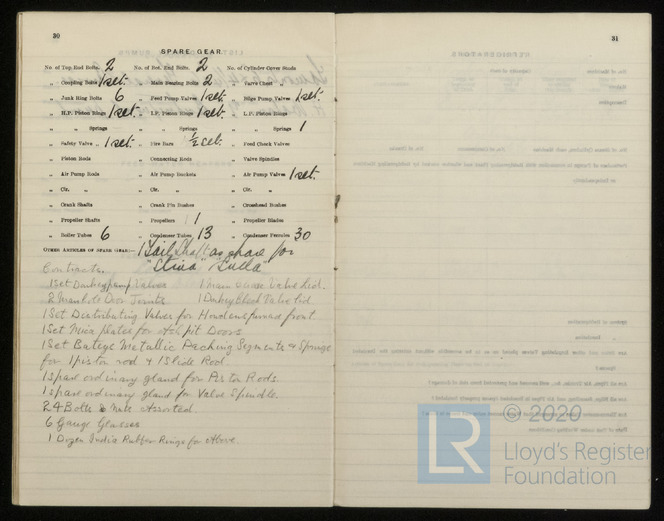 30
SPARE GEAR.
No. of Top End Bolts. 2 No. of Bot. End Bolts. 2 No. of Cylinder Cover Studs
„ Coupling Bolts 1 set. „ Main Bearing Bolts 2 „ Valve Chest „
„ Junk Ring Bolts 6 „ Feed Pump Valves 1 set. „ Bilge Pump Valves 1 set.
„ H.P. Piston Rings 1 set. „ I.P. Piston Rings 1 set. „ L.P. Piston Rings
„ „ Springs „ „ Springs „ „ Springs 1
„ Safety Valve „ 1 set. „ Fire Bars ½ set. „ Feed Check Valves
„ Piston Rods „ Connecting Rods „ Valve Spindles
„ Air Pump Rods „ Air Pump Buckets „ Air Pump Valves 1 set.
„ Cir. „ „ Cir. „ „ Cir. „
„ Crank Shafts „ Crank Pin Bushes „ Crosshead Bushes
„ Propeller Shafts „ Propellers 1 „ Propeller Blades
„ Boiler Tubes 6 „ Condenser Tubes 13 „ Condenser Ferrules 30
OTHER ARTICLES OF SPARE GEAR:— 1 Tail Shaft as spare for
1 Set Donkey pump Valves 1 Main Valve Lid.
2 Manhole Door Joints 1 Donkey Check Valve Lid
1 Set Distributing Valves for front
1 Set Mica plates for Ash pit Doors
1 Set Metallic Packing Segments & Springs
for 1 piston rod & 1 Slide Rod
1 spare ordinary gland for Piston Rods.
1 spare ordinary gland for Valve Spindle.
24 Bolts & Nuts Assorted.
6 Gauge Glasses
1 Dozen India Rubber Rings for Above.
31
© 2020
LR
Lloyd's Register
Foundation